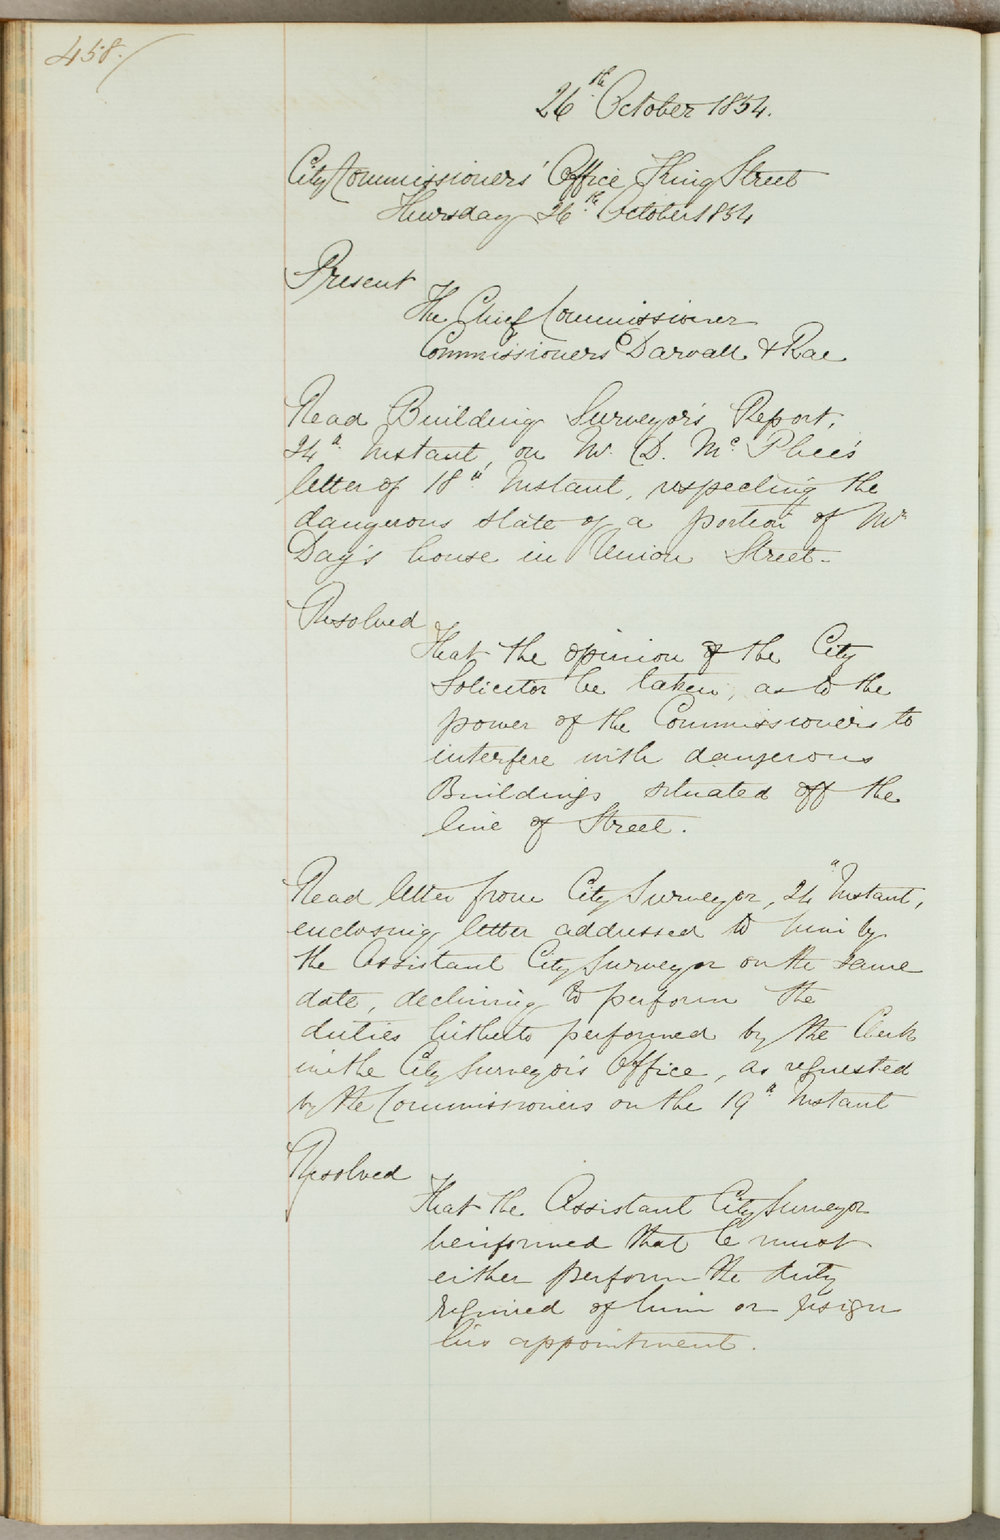 458.
26th October 1854.
City Commissioners' Office King Street
Thursday 26th October 1854
Present
The Chief Commissioner
Commissioners Darvall & Rae
Read Building Surveyor's Report,
24th Instant, on Mr. D. McPhee's
letter of 18th Instant, respecting the
dangerous state of a portion of Mr
Day's house in Union Street.
Resolved
That the opinion of the City
Solicitor be taken, as to the
power of the Commissioners to
interfere with dangerous
Buildings situated off the
line of Street.
Read letter from City Surveyor, 24th Instant,
enclosing letter addressed to him by
the Assistant City Surveyor on the same
date, declining to perform the
duties hitherto performed by the Clerk
in the City Surveyor's Office, as requested
by the Commissioners on the 19th Instant
Resolved
That the Assistant City Surveyor
be informed that he must
either perform the duty
required of him or resign
his appointment.